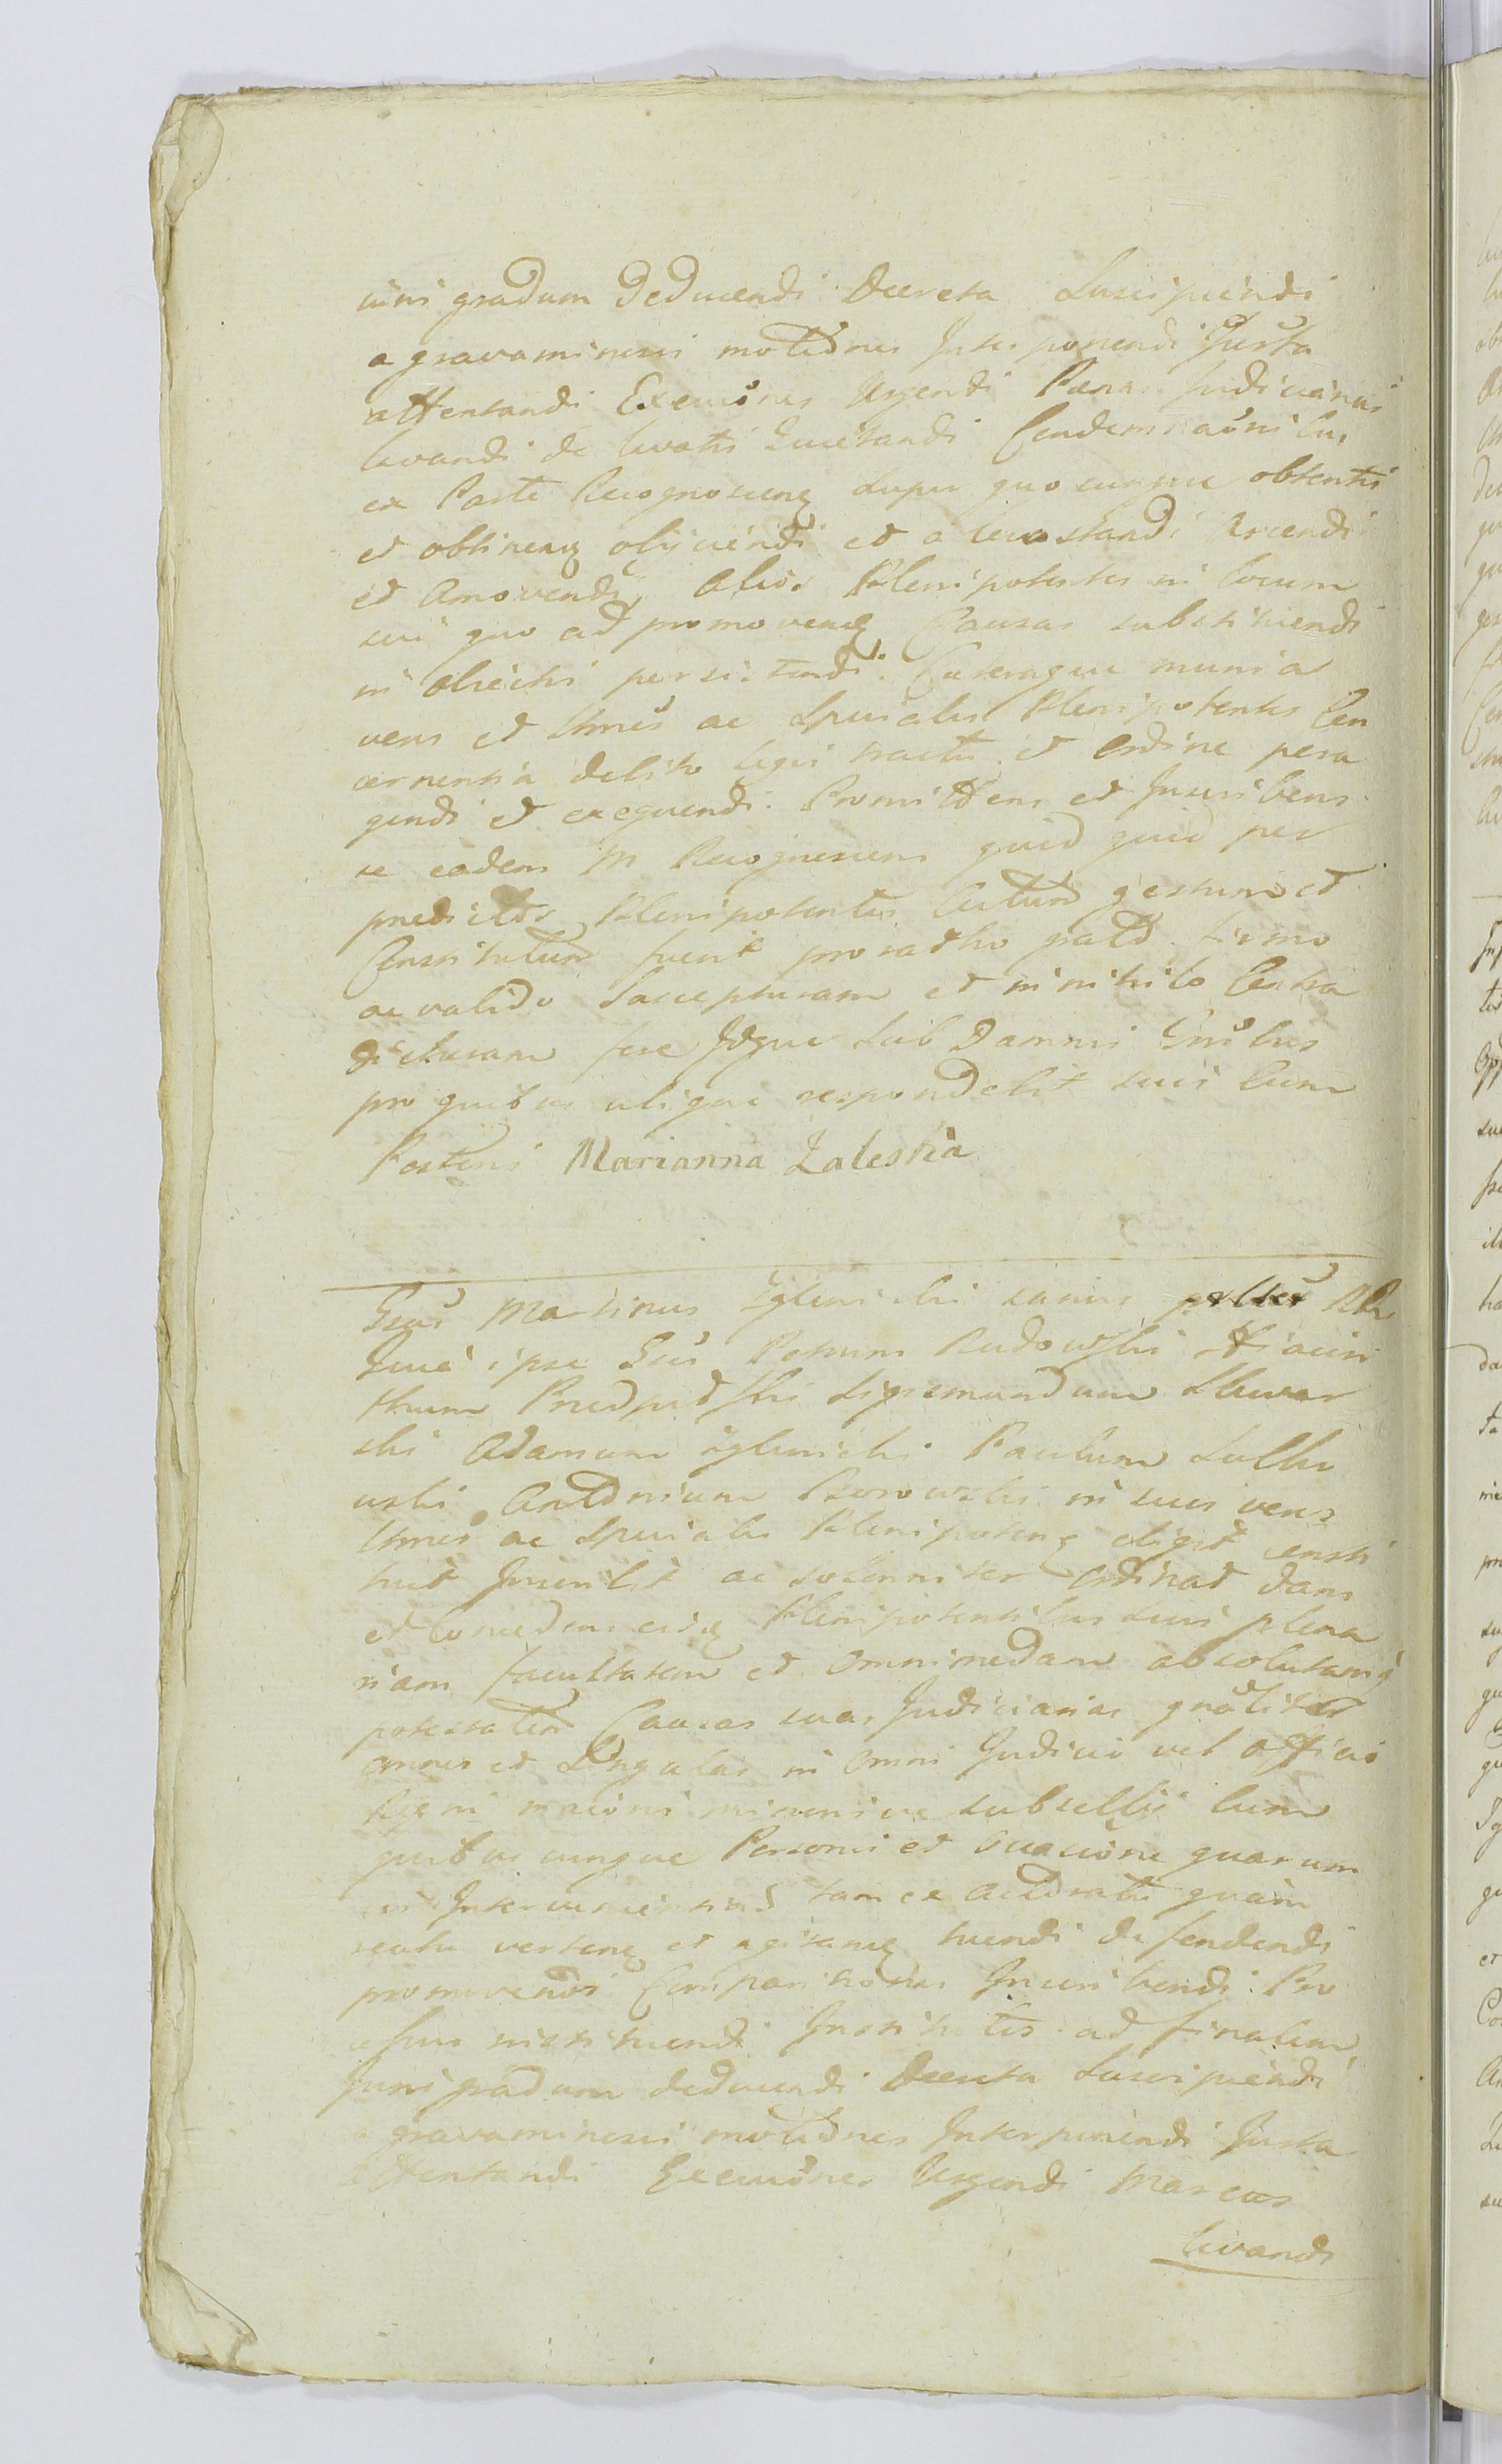 iuris gradum Deducendi Decreta Suscipiendi
a gravaminesis motiones Interponendi Justa
attentandi Exeuões Urgendi Penas Judiciarias
levandi de levatis Quietandi Condemnaõnibus
ex Parte Recognoscenę super quocunque obtentis
et obtinenę obijciendi et a levastandi Arcendi
et Amovendi, Alios Plenipotentes in locum
sui quo ad promovenę Causas substituendi
in obiectis persistendi. Caeteraque munia
veros et Umõs ac Spuiales Plenipotentes Con
cernentia debito legis tractu et Ordine pera
gendi et exequendi. Promittens et Inscribens
se eadem M Recognoscens quid quid per
predictos Plenipotentes Actum gestum et
Constitutum fuerit pro ratho grato firmo
ac valido Suscepturam et in nihilo Contra
dicturam fore Idque sub Damnis Gnõbus
pro quibus ubique respondebit suis Cum
Posteris Marianna Zaleska
Gsus Martinus Zglinicki sanus Rlr
Quia ipse Gsũ Petrum Rudowski Hiacin
thum Przedpełski Sigismundum Skwar
ski Adamum Zglinicki Paulum Sulko
wski Antonium Psarowski in suos veros
Umõs ac Spuiales Plenipotenę eligit consti
tuit Inscribit ac Solenniter Ordinat dans
et Concedens eisdę Plenipotentibus suis plena
riam facultatem et Omnimodam absolutamq
potestatem Causas suas Judiciarias gnãliter
omnes et Singulas in Omni Judicio vel Officio
Regni maioris minorisve subsellij Cum
quibus cunque Personis et Occasione quarum
vis Intervenientium tam ex Actoratu quam
reatu vertenę et agitanę tuendi defendendi
promovendi Comparitiones Inscribendi Pro
cessus instituendi Institutos ad finalem
Juris gradum deducendi Decreta Suscipiendi
a gravaminesis motiones Interponendi Justa
attentandi Exeuões Urgendi Marcas
levandi